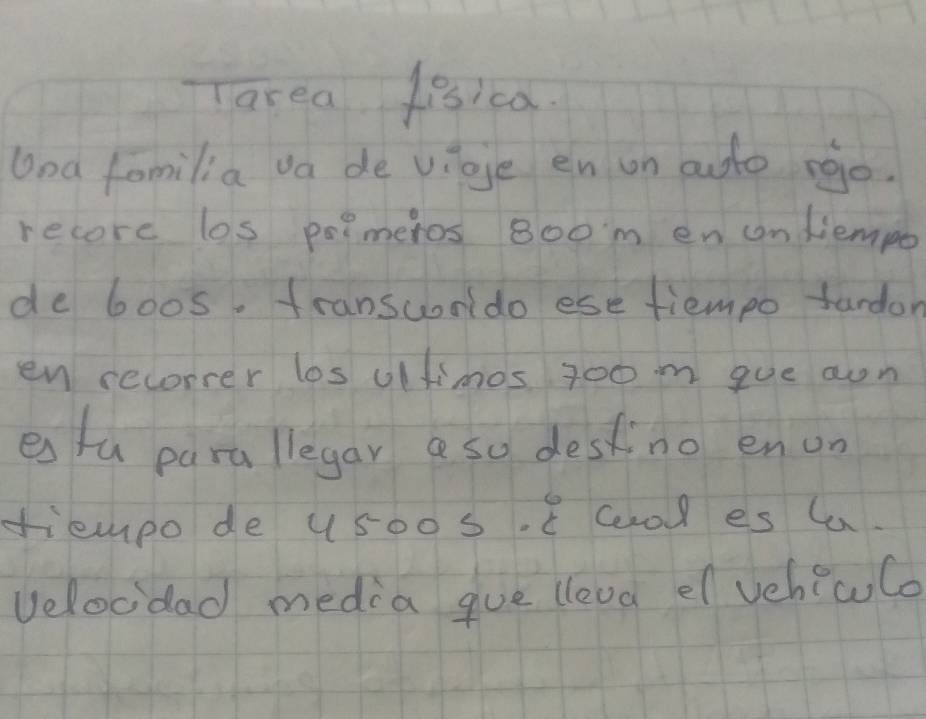 Tarea física.
Una familia va de viaje en un auto rojo.
recore los primeros 800 m en un tiempo
de 600s. transcurrido ese tiempo tardan
en recorrer los ultimos 700 m que aun
esta para llegar a su destino en un
tiempo de 4500s. ¿ Cual es la
velocidad media que lleva el vehiculo